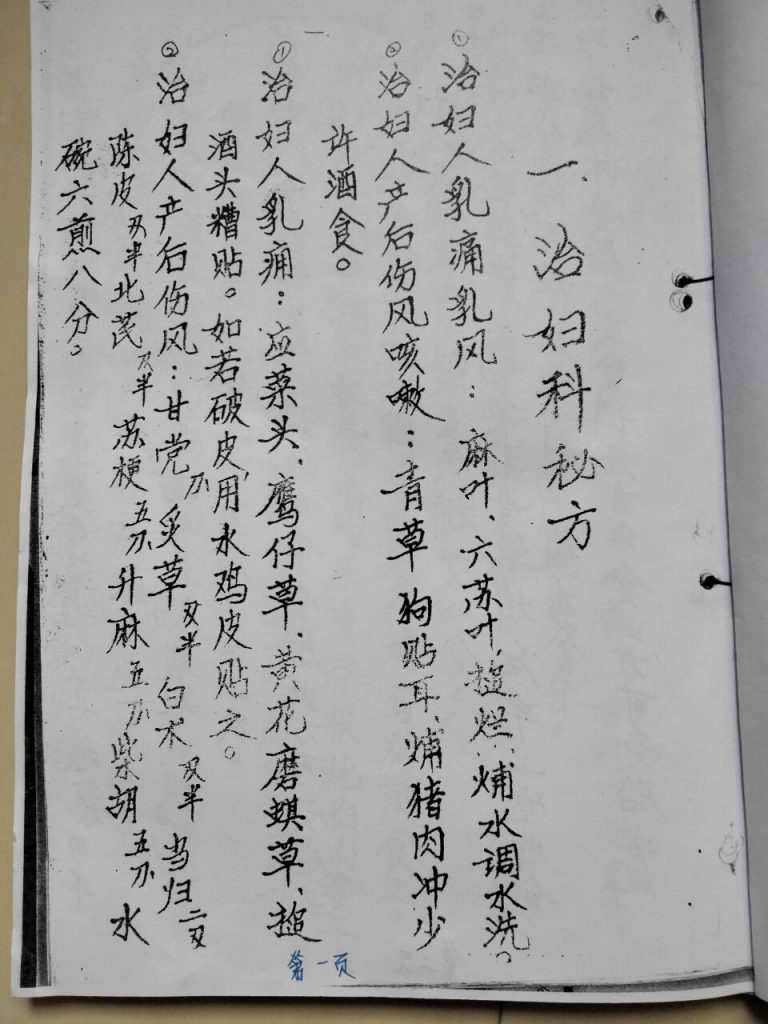 一、治妇科秘方
①治妇人乳痛乳风：麻叶、六苏叶，搥烂，焿水调水洗。
②治妇人产后伤风咳嗽：青草狗贴耳、焿猪肉冲少
许酒食。
①治妇人乳痈：应菜头、鹰仔草、黄花磨蜞草、搥
酒头糟贴。如若破皮，用水鸡皮贴之。
②治妇人产后伤风：甘党 炙草 白术 当归
陈皮 北芪 苏梗 升麻 柴胡 水
碗六煎八分。
第一页